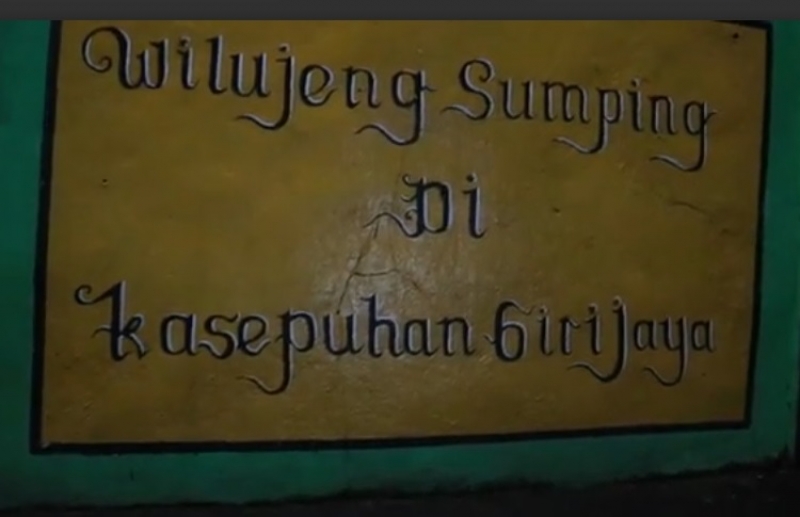 Wilujeng Sumping
Di
Kasepuhan Girijaya